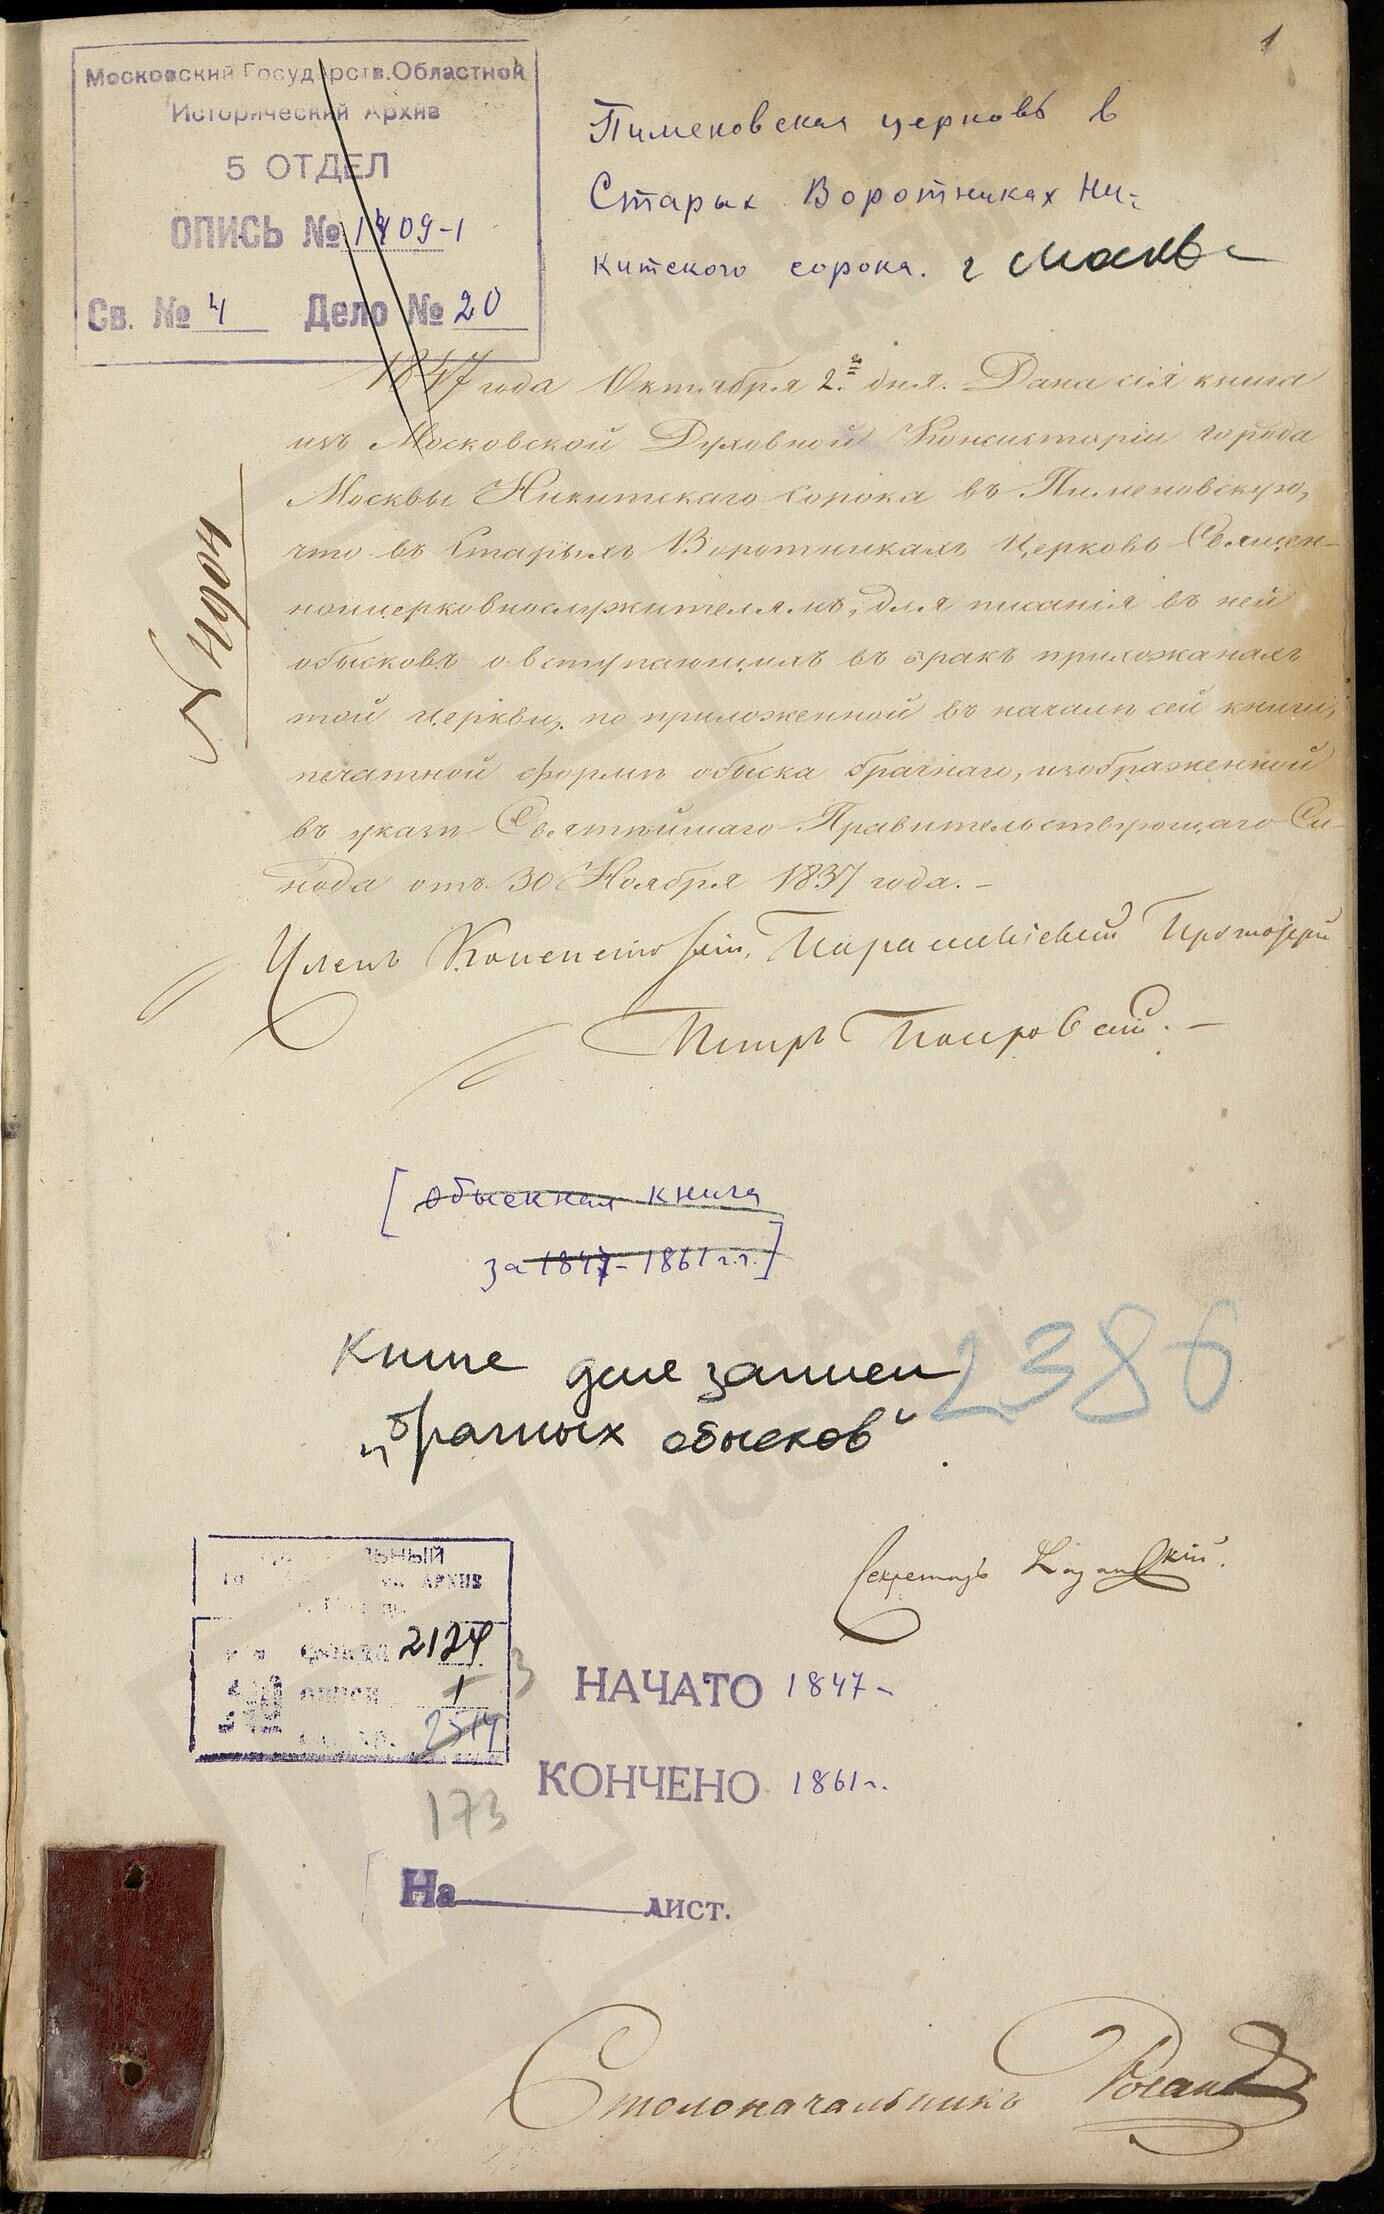 1
Московский Государств. Областной
Исторический Архив
5 ОТДЕЛ
ОПИСЬ № 1409-1
Св. № 4 Дело № 20
Пименовская церковь в
Старых Воротниках Ни-
китского сорока. г Москве
1847 года Октября 2го дня. Дана сія книга
изъ Московской Духовной Консисторіи города
Москвы Никитскаго сорока въ Пименовскую,
что въ Старыхъ Воротникахъ Церковь Священ-
ноцерковнослужителямъ, для писанія въ ней
обысковъ о вступающихъ въ бракъ прихожанахъ
той церкви, по приложенной въ началѣ сей книги,
печатной формѣ обыска брачнаго, изображенной
въ указѣ Святѣйшаго Правительствующаго Си-
нода отъ 30 Ноября 1837 года. –
№ 4904
Членъ Протоіерей
Петръ Покровскій. –
[Обыскная книга
за 1847 - 1861 г.г.]
Книга для записи
„брачных обысков"
2386
Секретарь
АРХИВ
фонда 2124
описи 1
3
2514
173
НАЧАТО 1847 -
КОНЧЕНО 1861 г.
На лист.
Столоначальникъ
ГЛАВАРХИВ
МОСКВЫ